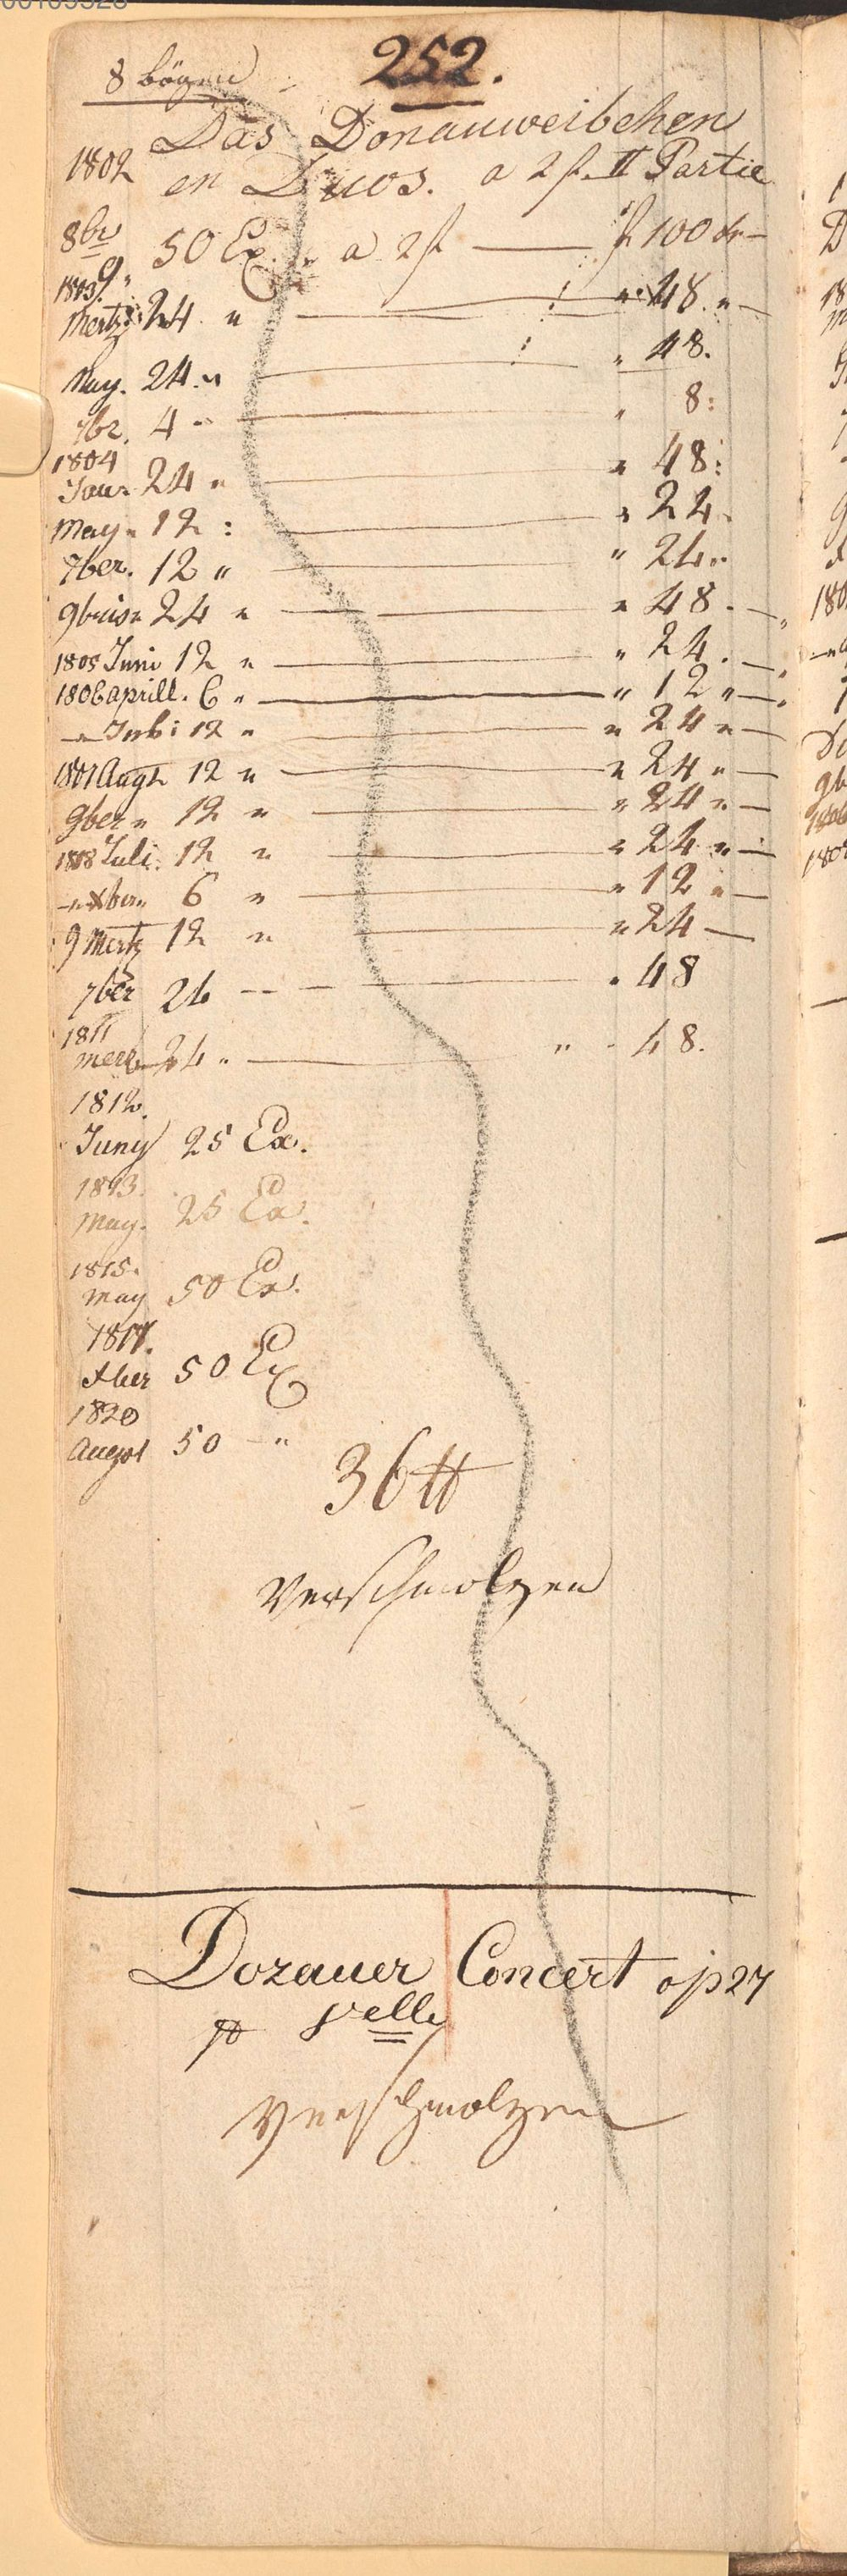 252.
8 bögen
Das Donauweibchen
1802 en Duos. a 2 f. II Partie
8br 50 Ex. a 2 f — f 100 kr —
1803
Mertz 24 " — " 48 " —
May. 24 " — " 48.
7br. 4 " — " 8:
1804
Jaur 24 " — " 48:
May " 12 : — " 24
7ber. 12 " — " 24 "
9bris " 24 " — " 48 . —
1805 Juni 12 " — " 24 . —
1806 aprill. 6 " — " 12 " —
— " 12 " — " 24 " —
1807 Augt 12 " — " 24 " —
9ber " 12 " — " 24 " —
1808 Juli. 12 " — " 24 " —
— " Xber " 6 " — " 12 " —
9 Mertz 12 " — " 24 —
7ber 24 — — " 48
1811
Mertz 24 " — " - 48.
1812.
Juny 25 Ex.
1813.
May. 25 Ex.
1815.
May 50 Ex.
1817.
Xber 50 Ex
1820
Augst 50 - "
36 ℔
Verschmolzen
Dozauer Concert op 27
p Velle
Verschmolzen